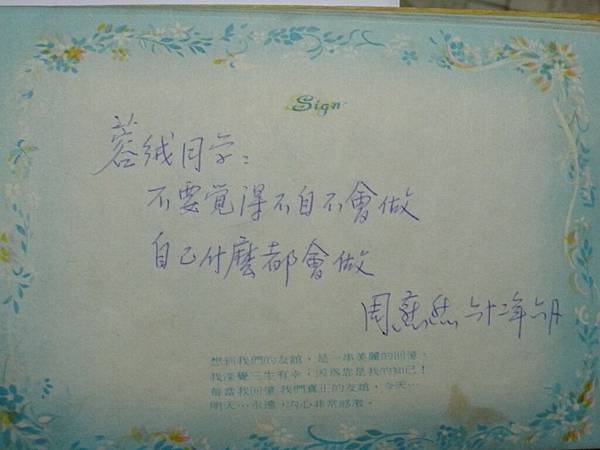 Sign
蓉絨同学：
不要覺得不自不會做
自己什麼都會做
周 六十二年六月
想到我們的友誼，是一串美麗的回憶。
我深覺三生有幸；因為您是我的知己！
每當我回憶 我們真正的友誼，今天…
明天…永遠，內心非常感激。